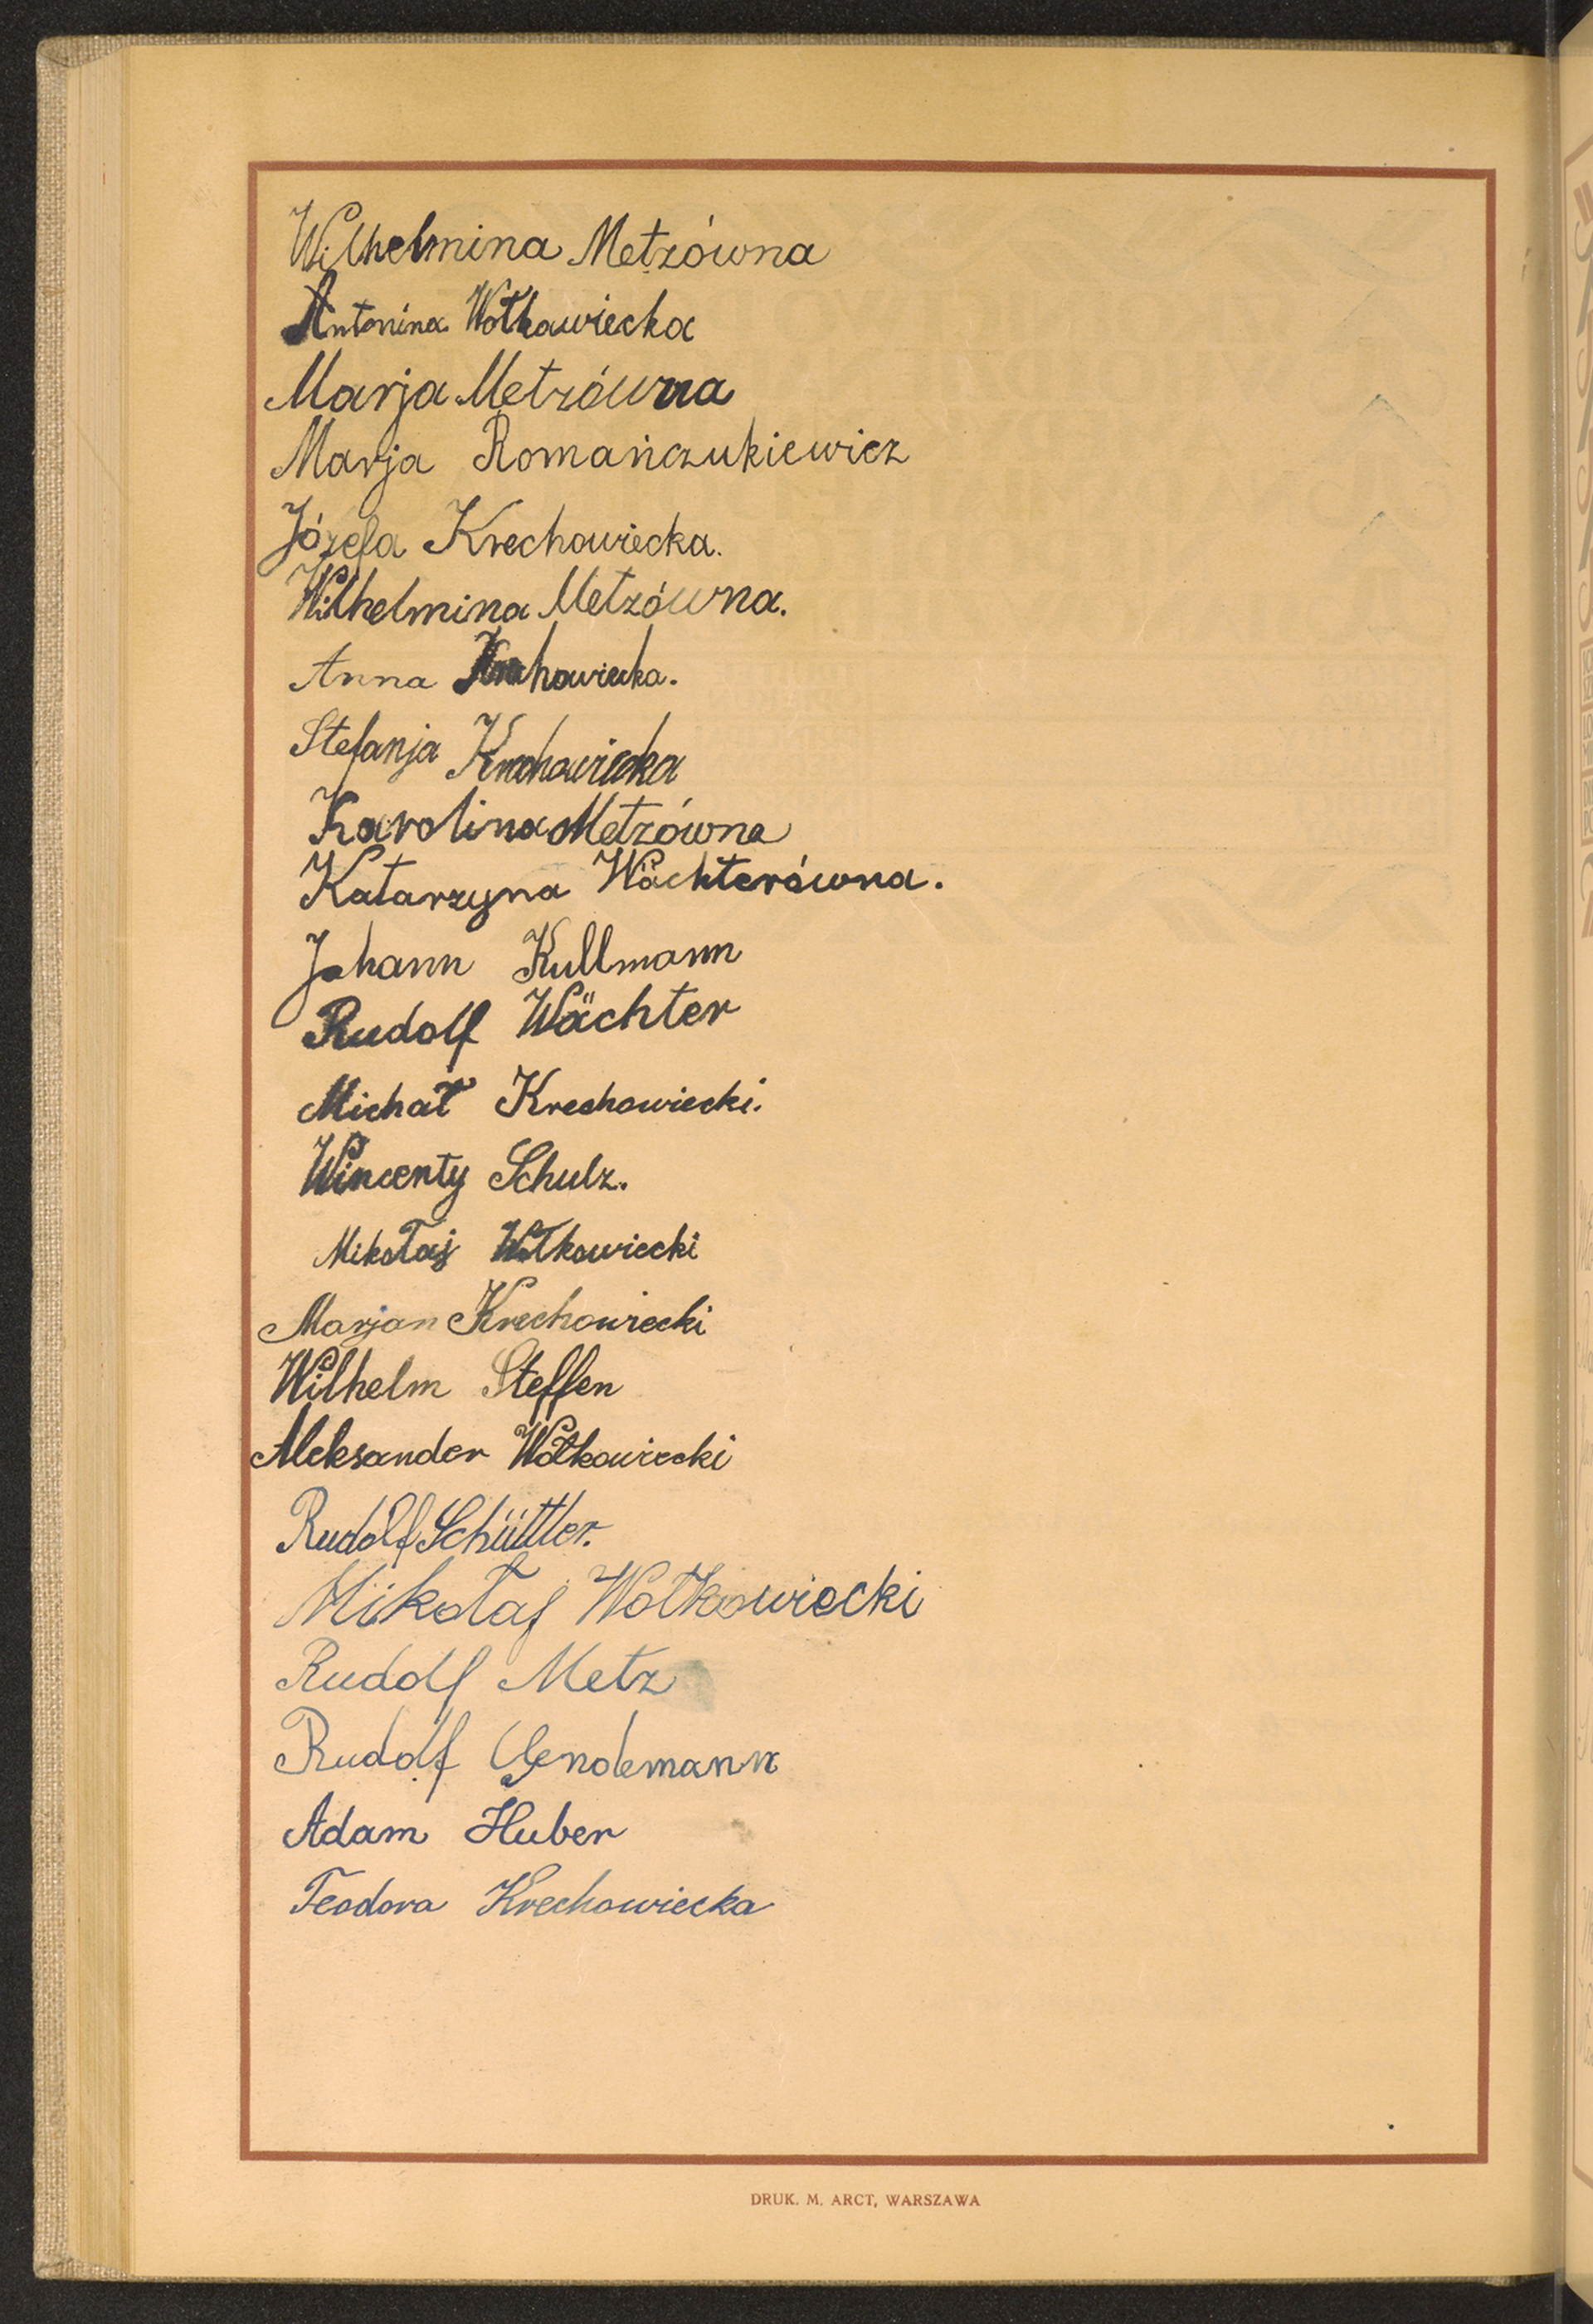 Wilhelmina Metzówna
Antonina Wołkawiecka
Marja Metzówna
Marja Romańczukiewicz
Józefa Krechowiecka.
Wilhelmina Metzówna.
Anna Krechowiecka.
Stefanja Krechowiecka
Karolina Metzówna
Katarzyna Wächterówna.
Johann Kullmann
Rudolf Wächter
Michał Krechowiecki.
Wincenty Schulz.
Mikołaj Wołkowiecki
Marjan Krechowiecki
Wilhelm Steffen
Aleksander Wołkowiecki
Rudolf Schüttler.
Mikołaj Wołkowiecki
Rudolf Metz
Rudolf Gendemann
Adam Huber
Teodora Krechowiecka
DRUK. M. ARCT, WARSZAWA